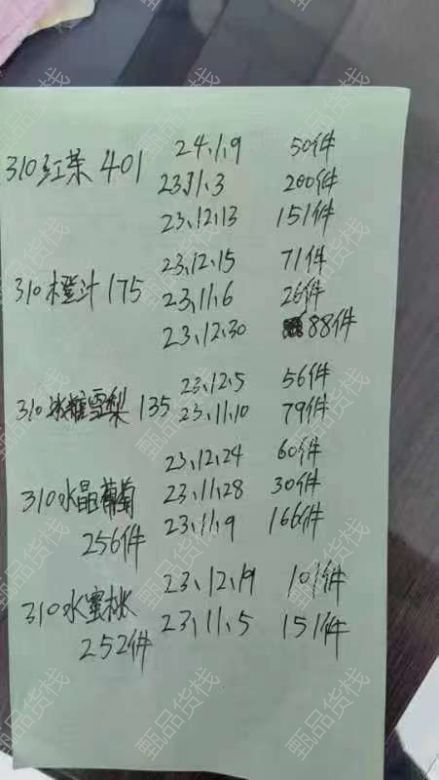 24、1、9 50件
310红茶 401
23、11、3 200件
23、12、13 151件
23、12、15 71件
310橙汁 175
23、11、6 26件
23、12、30 88件
23、12、5 56件
310冰糖雪梨 135
23、11、10 79件
23、12、24 60件
310水晶葡萄
23、11、28 30件
23、11、9 166件
256件
23、12、19 101件
310水蜜桃
23、11、5 151件
252件
甄品货栈